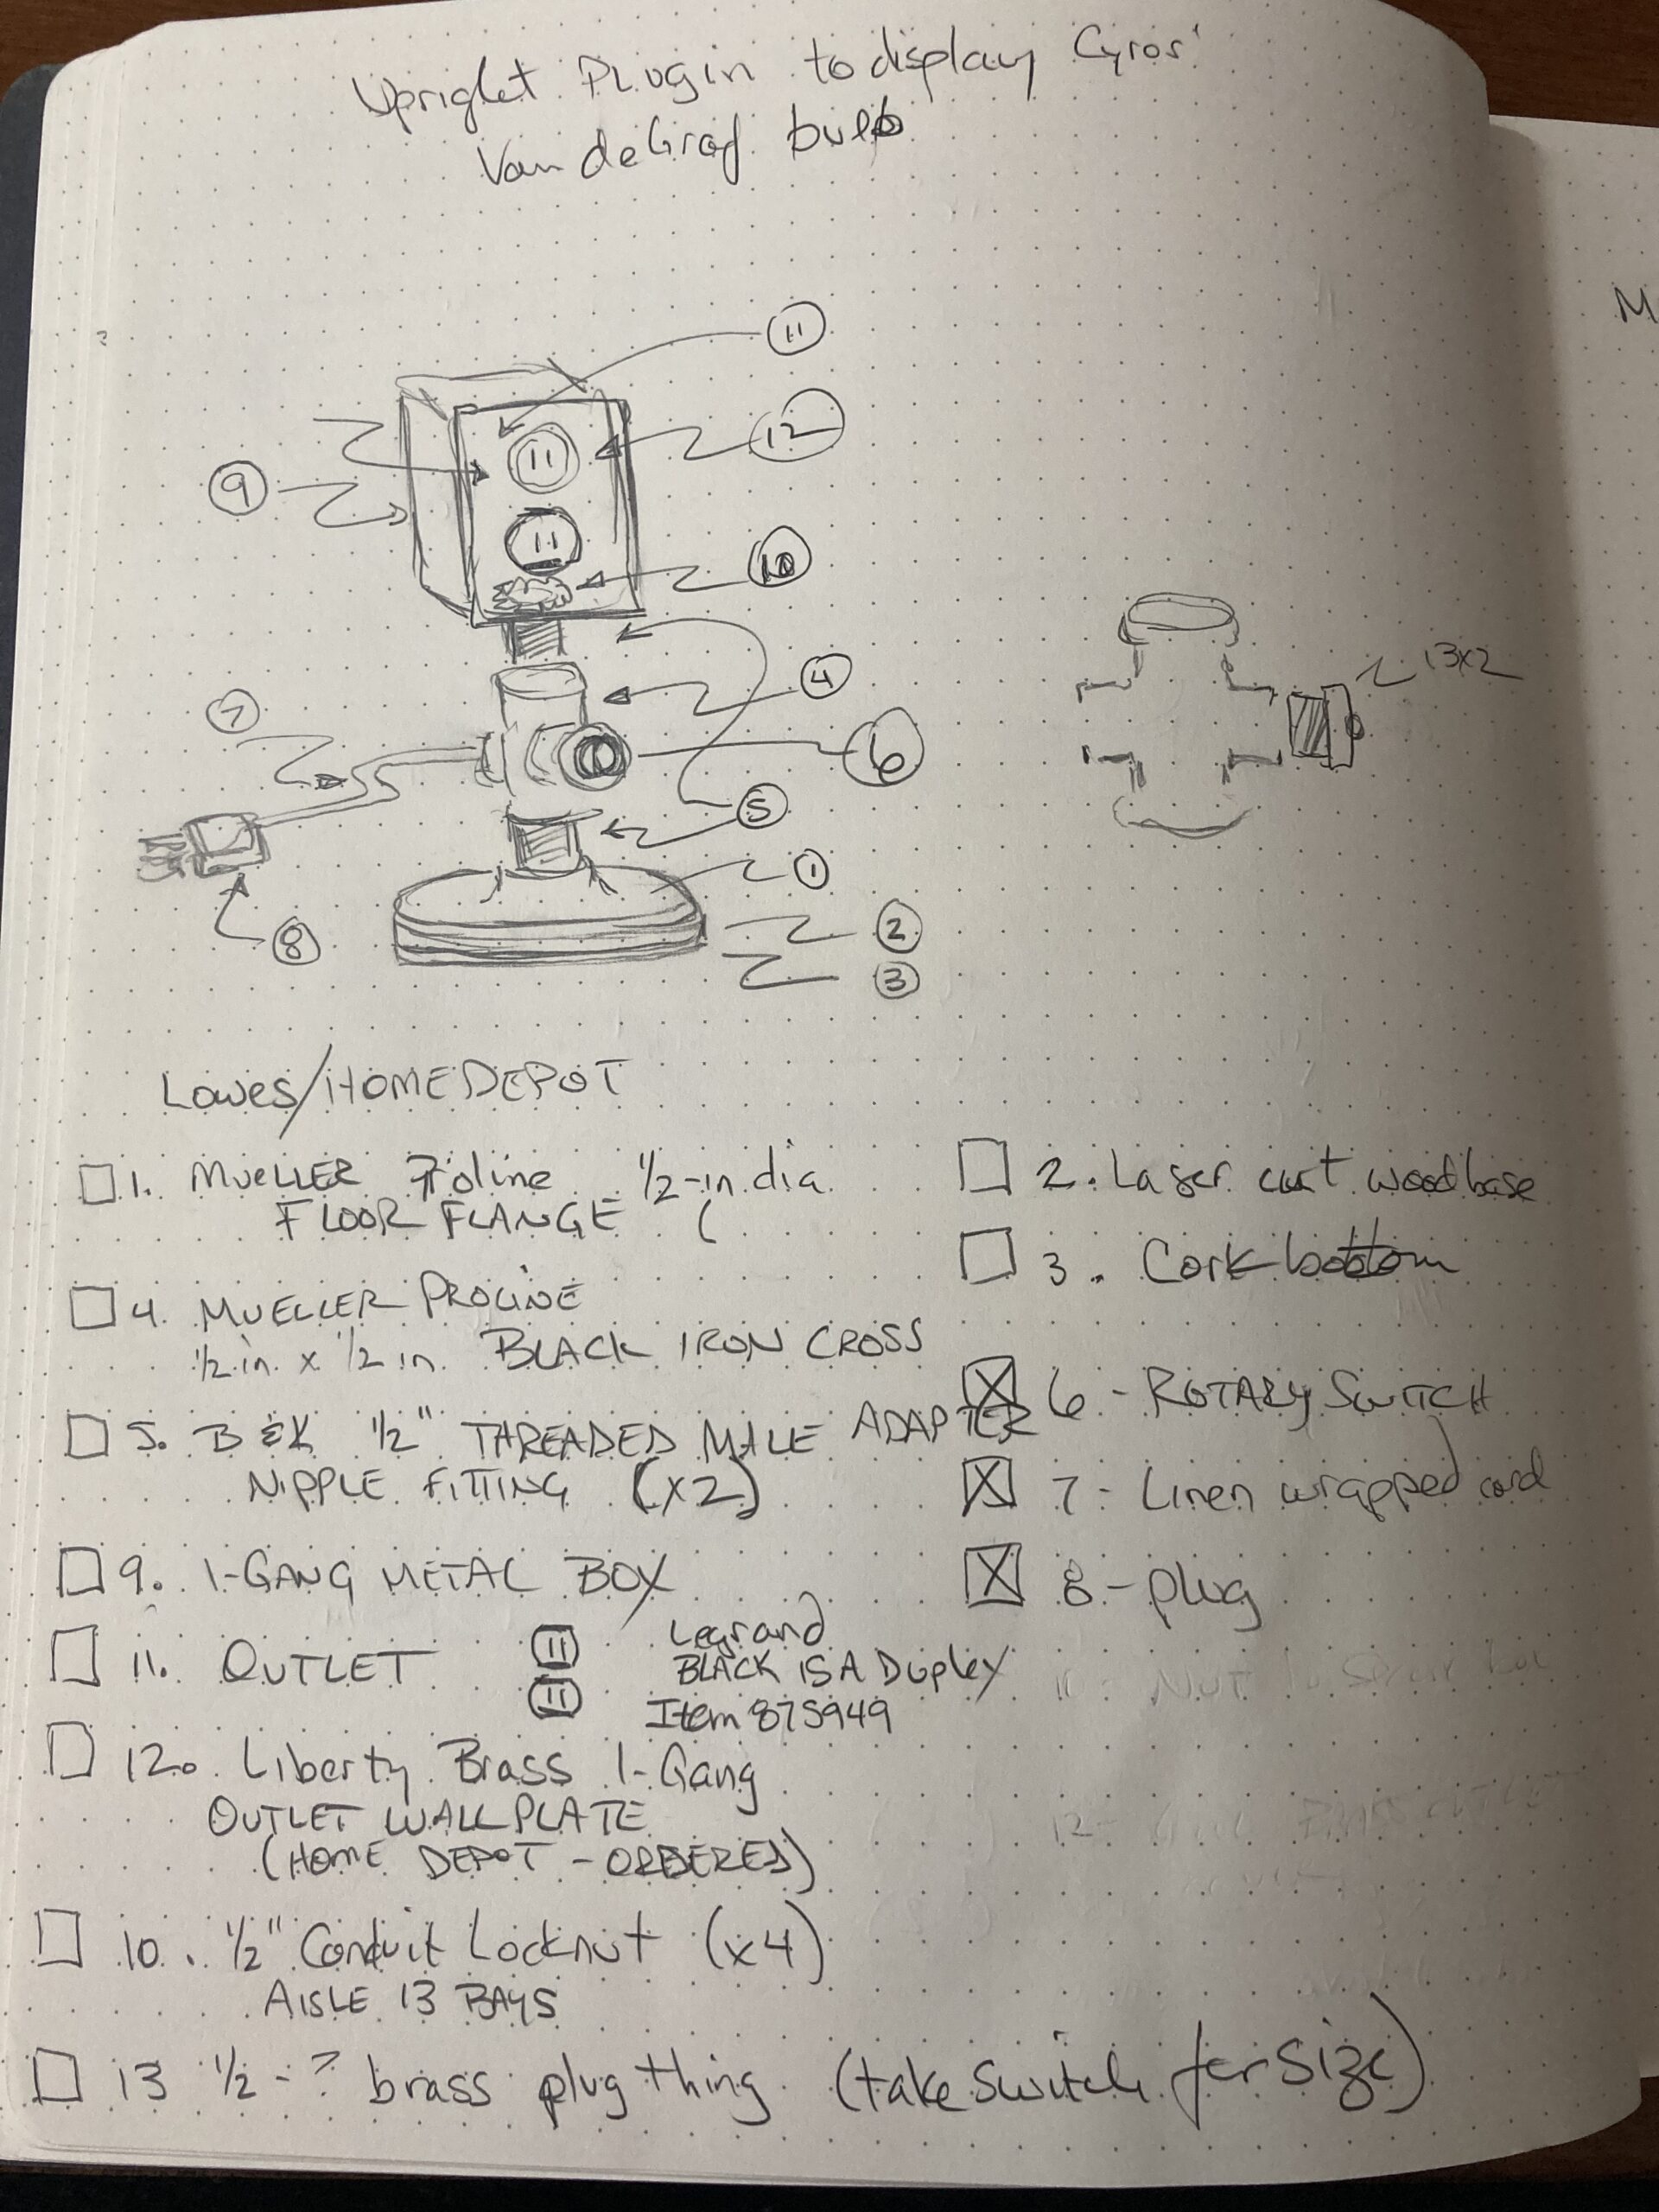 Upright Plugin to display Cyros'
Van de Graf bulb
11
12
9
10
4
7
6
5
1
2
8
3
13x2
M
Lowes/HOME DEPOT
1. MUELLER Proline 1/2-in dia
FLOOR FLANGE (
2. Laser cut wood base
3. Cork bottom
4. MUELLER PROLINE
1/2 in. x 1/2 in. BLACK IRON CROSS
5. B&K 1/2" THREADED MALE ADAPTER
NIPPLE FITTING (x2)
6 - ROTARY SWITCH
7 - Linen wrapped cord
8 - plug
9. 1-GANG METAL BOX
11. OUTLET
Legrand
BLACK 15A Duplex
Item 875949
12. Liberty Brass 1-Gang
OUTLET WALLPLATE
(HOME DEPOT - ORDERED)
10. 1/2" Conduit Locknut (x4)
AISLE 13 BAY5
13 1/2 - ? brass plug thing (take switch for size)